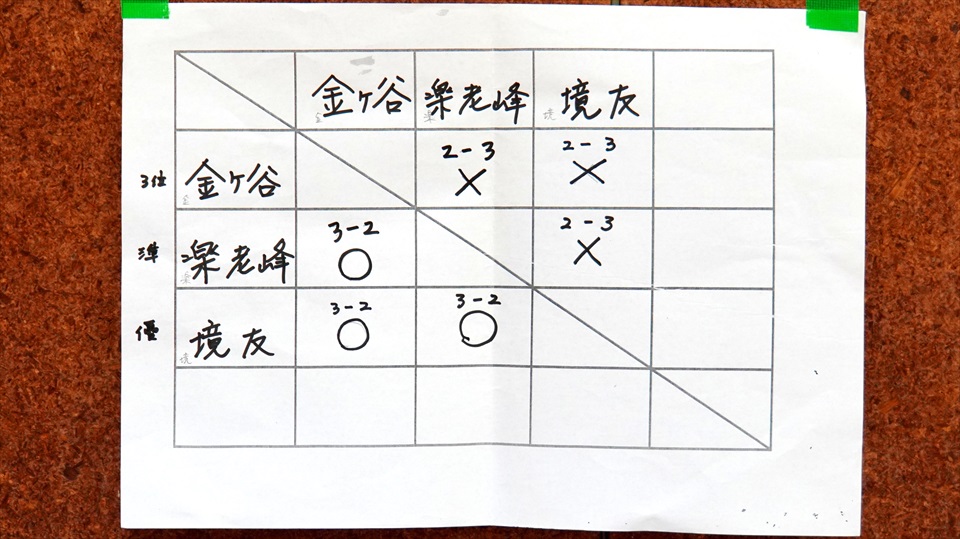 金ヶ谷 楽老峰 境友
3位 金ヶ谷 2-3 × 2-3 ×
準 楽老峰 3-2 ○ 2-3 ×
優 境友 3-2 ○ 3-2 ○